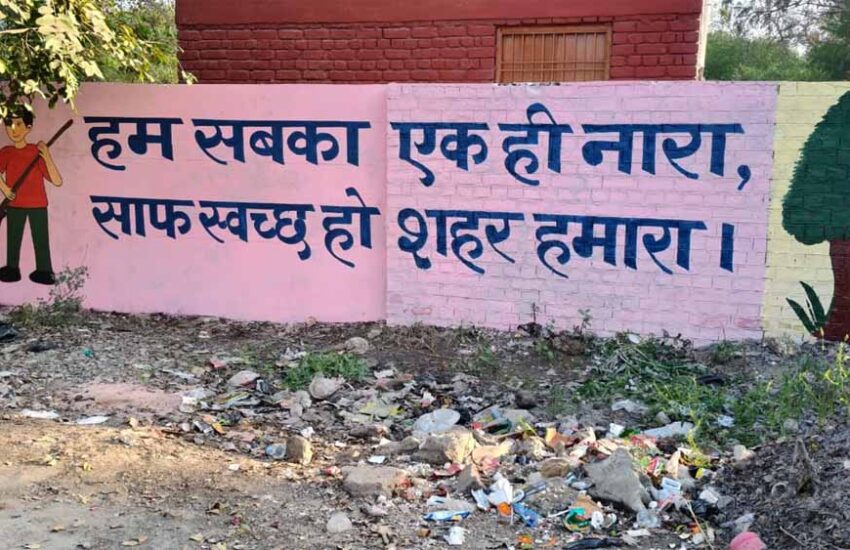 हम सबका एक ही नारा,
साफ स्वच्छ हो शहर हमारा।